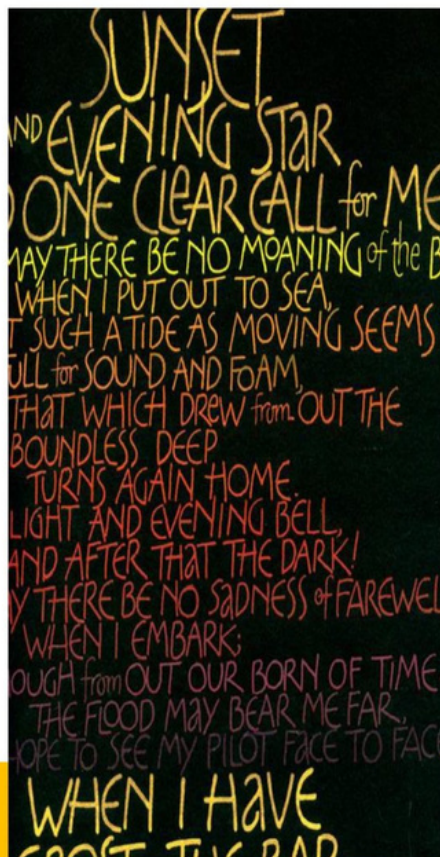 SUNSET
AND EVENING STAR
ONE CLEAR CALL for ME
MAY THERE BE NO MOANING of the B
WHEN I PUT OUT TO SEA,
T SUCH A TIDE AS MOVING SEEMS
ULL for SOUND AND FOAM,
THAT WHICH DREW from OUT THE
BOUNDLESS DEEP
TURNS AGAIN HOME.
LIGHT AND EVENING BELL,
AND AFTER THAT THE DARK!
Y THERE BE NO SADNESS of FAREWEL
WHEN I EMBARK;
OUGH from OUT OUR BORN OF TIME
THE FLOOD MAY BEAR ME FAR,
HOPE TO SEE MY PILOT FACE TO FACE
WHEN I HAVE
CROST THE BAR